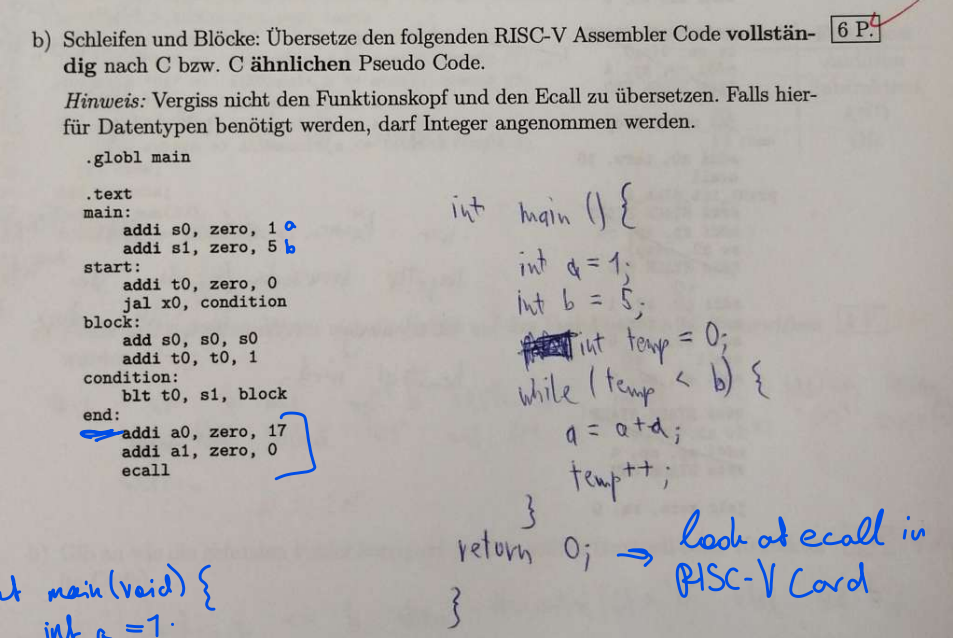 b) Schleifen und Blöcke: Übersetze den folgenden RISC-V Assembler Code vollstän- 6 P.
dig nach C bzw. C ähnlichen Pseudo Code.
Hinweis: Vergiss nicht den Funktionskopf und den Ecall zu übersetzen. Falls hier-
für Datentypen benötigt werden, darf Integer angenommen werden.
.globl main
.text
main:
addi s0, zero, 1 a
addi s1, zero, 5 b
start:
addi t0, zero, 0
jal x0, condition
block:
add s0, s0, s0
addi t0, t0, 1
condition:
blt t0, s1, block
end:
addi a0, zero, 17
addi a1, zero, 0
ecall
int main () {
int a = 1;
int b = 5;
int temp = 0;
while (temp < b) {
a = a+a;
temp++;
}
return 0; ⇒ look at ecall in
RISC-V Card
}
main(void) {
int a = 1.